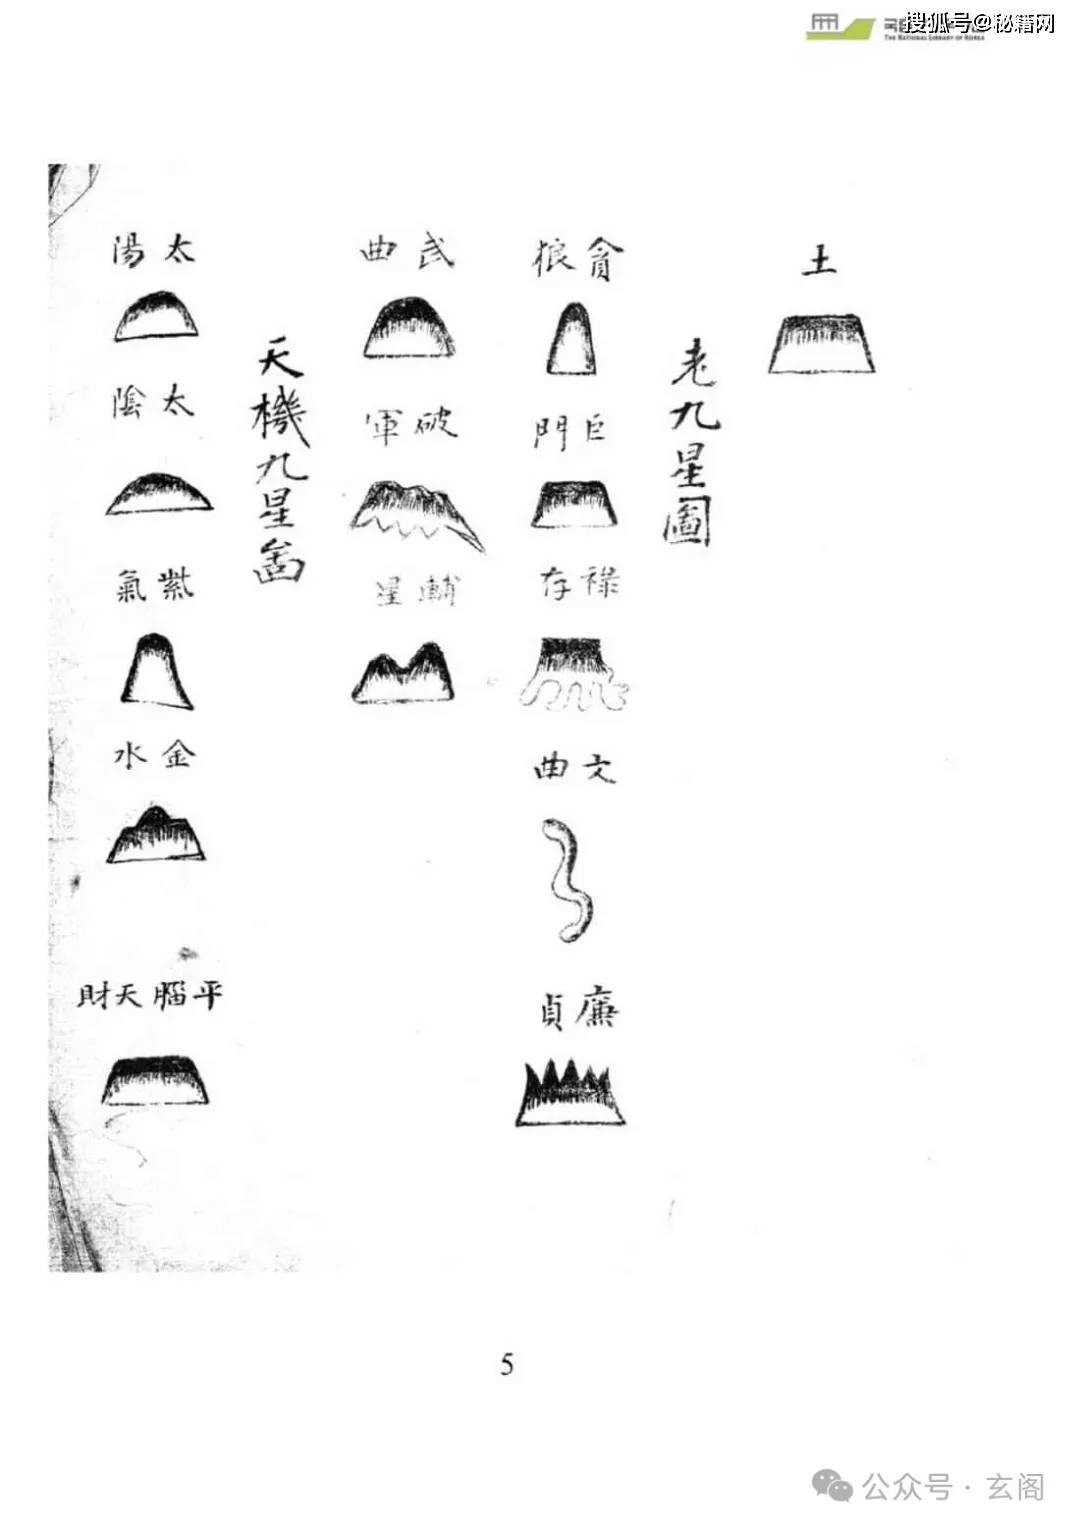 搜狐号@秘籍网
THE NATIONAL LIBRARY OF KOREA
土
老九星圖
貪狼
巨門
祿存
文曲
廉貞
武曲
破軍
輔星
天機九星啚
太陽
太陰
紫氣
金水
平腦天財
5
公众号·玄阁